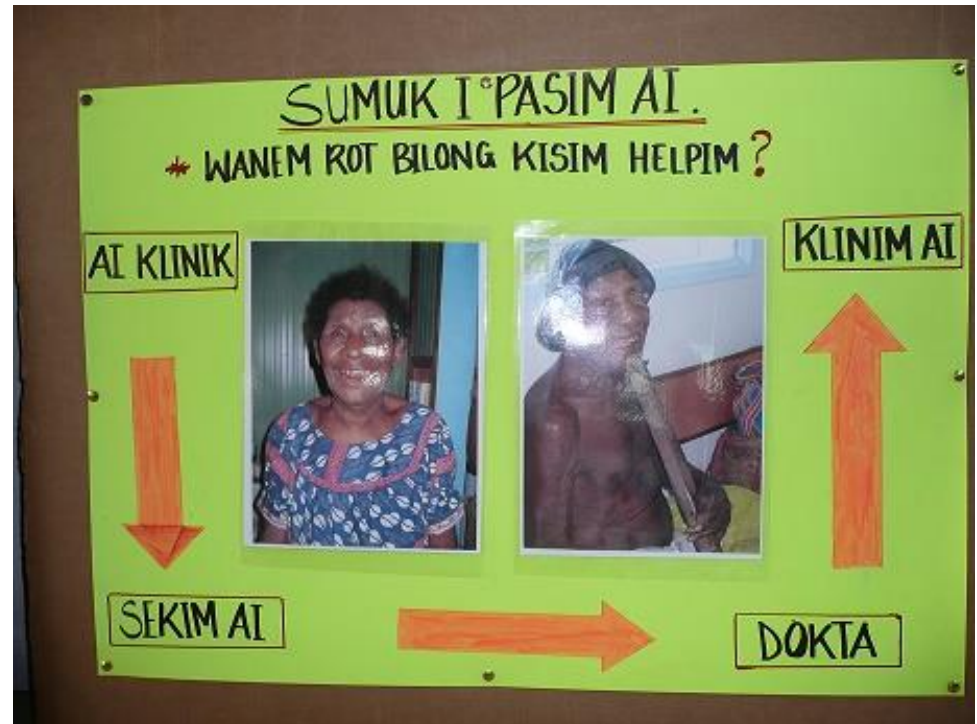 SUMUK I PASIM AI.
* WANEM ROT BILONG KISIM HELPIM?
AI KLINIK
KLINIM AI
SEKIM AI
DOKTA